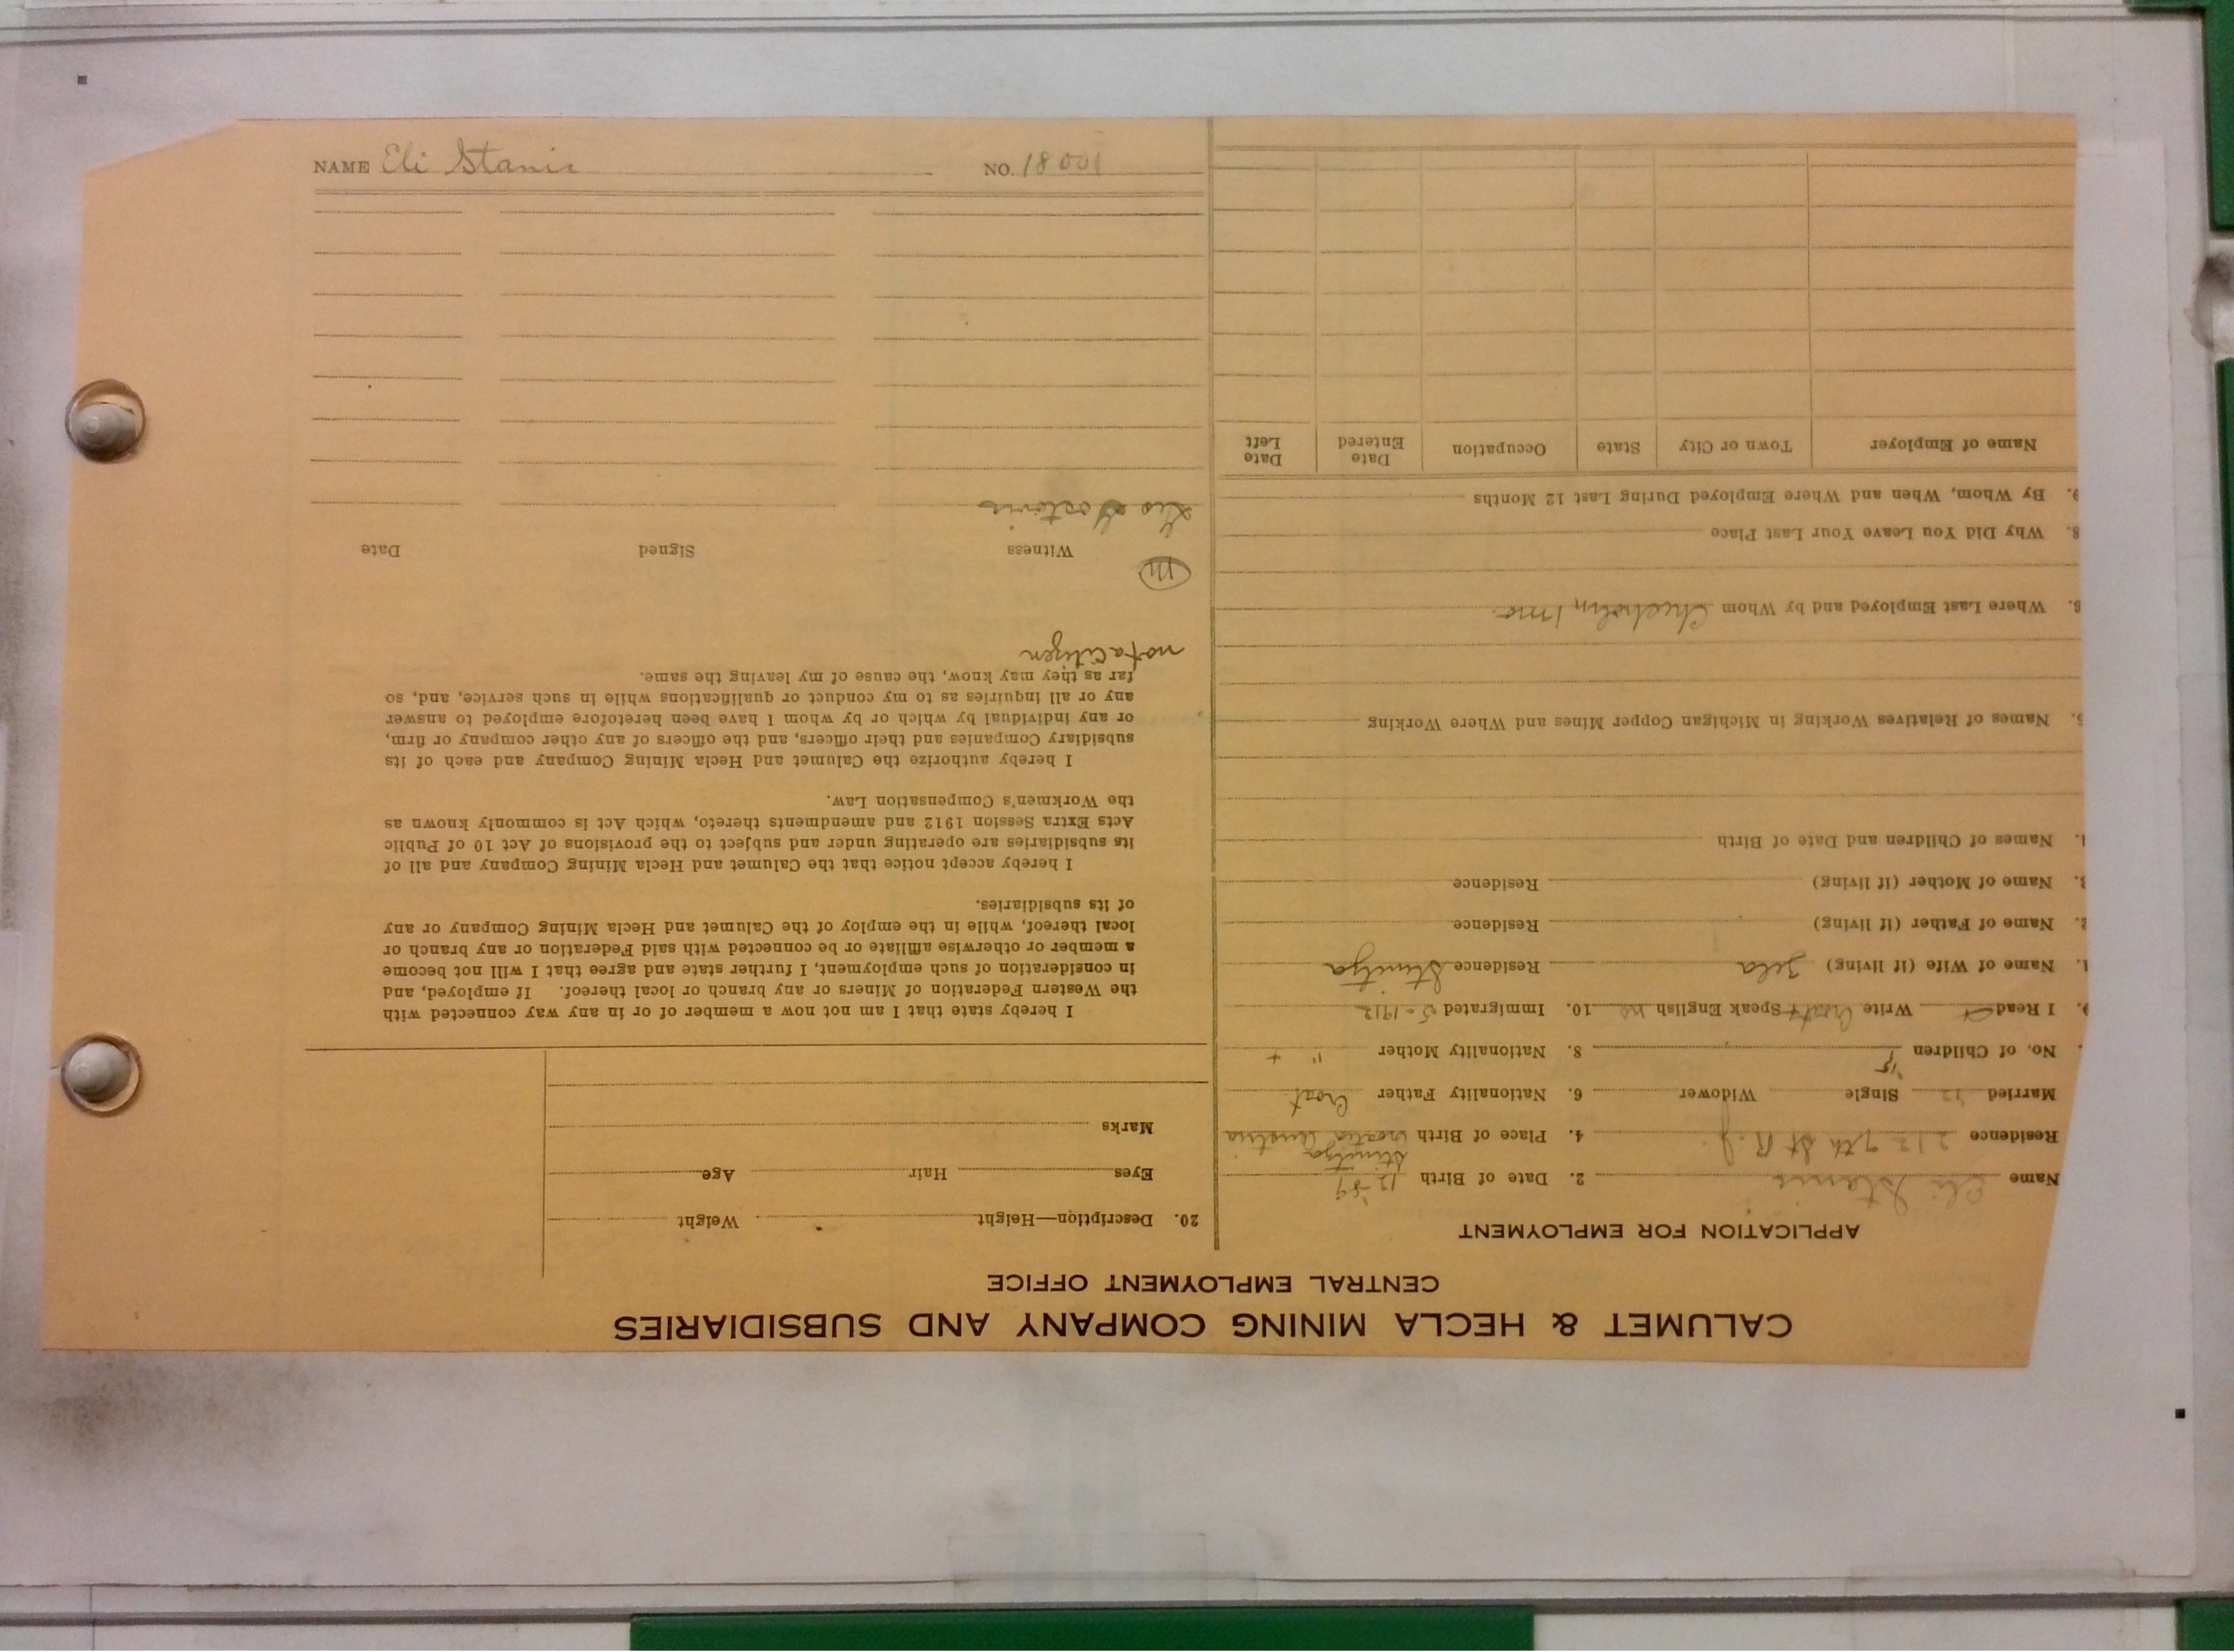 CALUMET & HECLA MINING COMPANY AND SUBSIDIARIES
CENTRAL EMPLOYMENT OFFICE
APPLICATION FOR EMPLOYMENT
Name Eli Stanic 2. Date of Birth 12-89
Stinitza
Residence 212 7th St R.J. 4. Place of Birth Croatia Austria
Married Single Widower 6. Nationality Father Croat
No. of Children 8. Nationality Mother " +
9. I Read Write Croat + Speak English no 10. Immigrated 5-1912
1. Name of Wife (if living) Residence Stinitza
2. Name of Father (if living) Residence
3. Name of Mother (if living) Residence
4. Names of Children and Date of Birth
5. Names of Relatives Working in Michigan Copper Mines and Where Working
6. Where Last Employed and by Whom Chisholm
8. Why Did You Leave Your Last Place
9. By Whom, When and Where Employed During Last 12 Months
Name of Employer Town or City State Occupation Date Entered Date Left
20. Description—Height Weight
Eyes Hair Age
Marks
I hereby state that I am not now a member of or in any way connected with
the Western Federation of Miners or any branch or local thereof. If employed, and
in consideration of such employment, I further state and agree that I will not become
a member or otherwise affiliate or be connected with said Federation or any branch or
local thereof, while in the employ of the Calumet and Hecla Mining Company or any
of its subsidiaries.
I hereby accept notice that the Calumet and Hecla Mining Company and all of
its subsidiaries are operating under and subject to the provisions of Act 10 of Public
Acts Extra Session 1912 and amendments thereto, which Act is commonly known as
the Workmen's Compensation Law.
I hereby authorize the Calumet and Hecla Mining Company and each of its
subsidiary Companies and their officers, and the officers of any other company or firm,
or any individual by which or by whom I have been heretofore employed to answer
any or all inquiries as to my conduct or qualifications while in such service, and, so
far as they may know, the cause of my leaving the same.
not a citizen
M
Witness Signed Date
NAME Eli Stanic NO. 18001